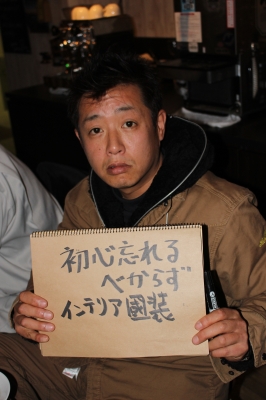 初心忘れる
べからず
インテリア國装